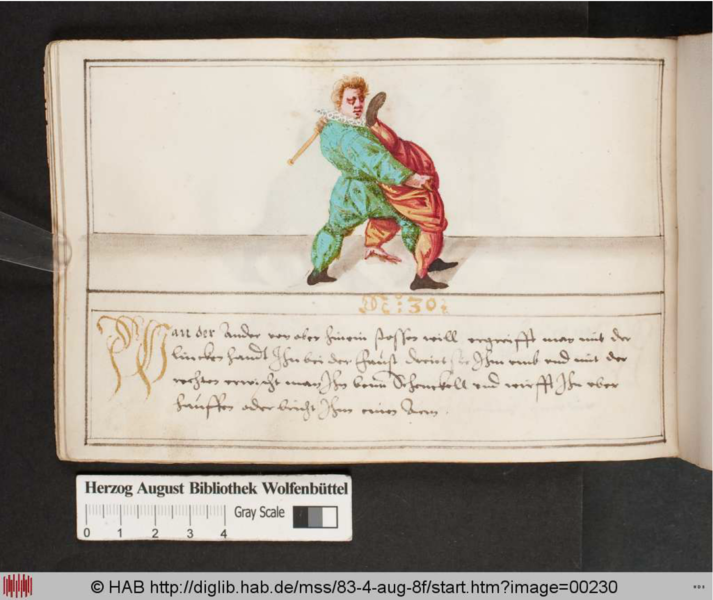 Nc: 30:
Wan der Ander von ober hinein stossen will ergreifft man mit der
lincken handt Ihn bei der Faust dreint Ihm umb und mit der
rechten erwischt man Ihn beim Schenckell und wirfft Ihn uber
hauffen oder bricht Ihm einen Arm.
Herzog August Bibliothek Wolfenbüttel
0 1 2 3 4 Gray Scale
© HAB http://diglib.hab.de/mss/83-4-aug-8f/start.htm?image=00230